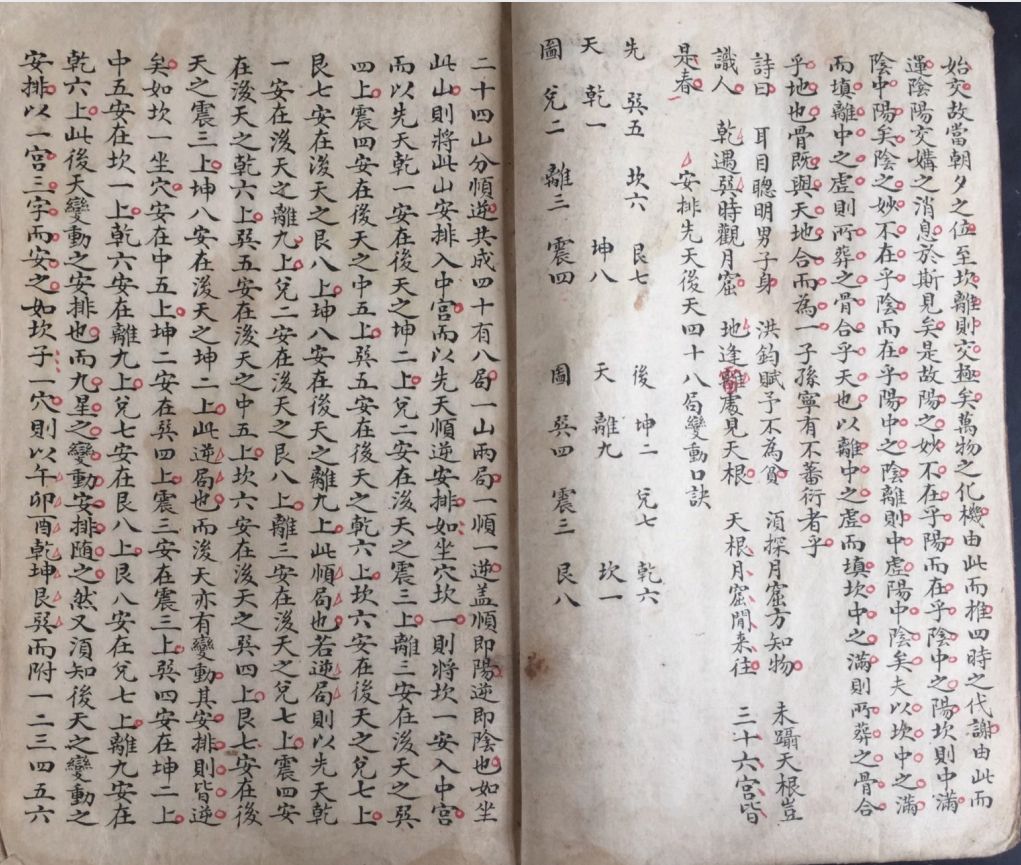 始交故當朝夕之位至坎離則交極矣萬物之化機由此而推四時之代謝由此而
運陰陽交媾之消息於斯見矣是故陽之妙不在乎陽而在乎陰中之陽坎則中滿
陰中陽矣陰之妙不在乎陰而在乎陽中之陰離則中虛陽中陰矣夫以坎中之滿
而填離中之虛則所葬之骨合乎天也以離中之虛而填坎中之滿則所葬之骨合
乎地也骨既與天地合而為一子孫寧有不蕃衍者乎
詩曰 耳目聰明男子身 洪鈞賦予不為貧 須探月窟方知物 未躡天根豈
識人 乾遇巽時觀月窟 地逢處見天根 天根月窟閒来往 三十六宮皆
是春 安排先天後天四十八局變動口訣
先 巽五 坎六 艮七 後 坤二 兌七 乾六
天 乾一 坤八 天 離九 坎一
圖 兌二 離三 震四 圖 巽四 震三 艮八
二十四山分順逆共成四十有八局一山兩局一順一逆盖順即陽逆即陰也如坐
此山則將此山安排入中宮而以先天順逆安排如坐穴坎一則將坎一安入中宮
而以先天乾一安在後天之坤二上兌二安在後天之震三上離三安在後天之巽
四上震四安在後天之中五上巽五安在後天之乾六上坎六安在後天之兌七上
艮七安在後天之艮八上坤八安在後天之離九上此順局也若逆局則以先天乾
一安在後天之離九上兌二安在後天之艮八上離三安在後天之兌七上震四安
在後天之乾六上巽五安在後天之中五上坎六安在後天之巽四上艮七安在後
天之震三上坤八安在後天之坤二上此逆局也而後天亦有變動其安排則皆逆
矣如坎一坐穴安在中五上坤二安在巽四上震三安在震三上巽四安在坤二上
中五安在坎一上乾六安在離九上兌七安在艮八上艮八安在兌七上離九安在
乾六上此後天變動之安排也而九星之變動安排随之然又須知後天之變動之
安排以一宮三字而安之如坎子一穴則以午卯酉乾坤艮巽而附一二三四五六